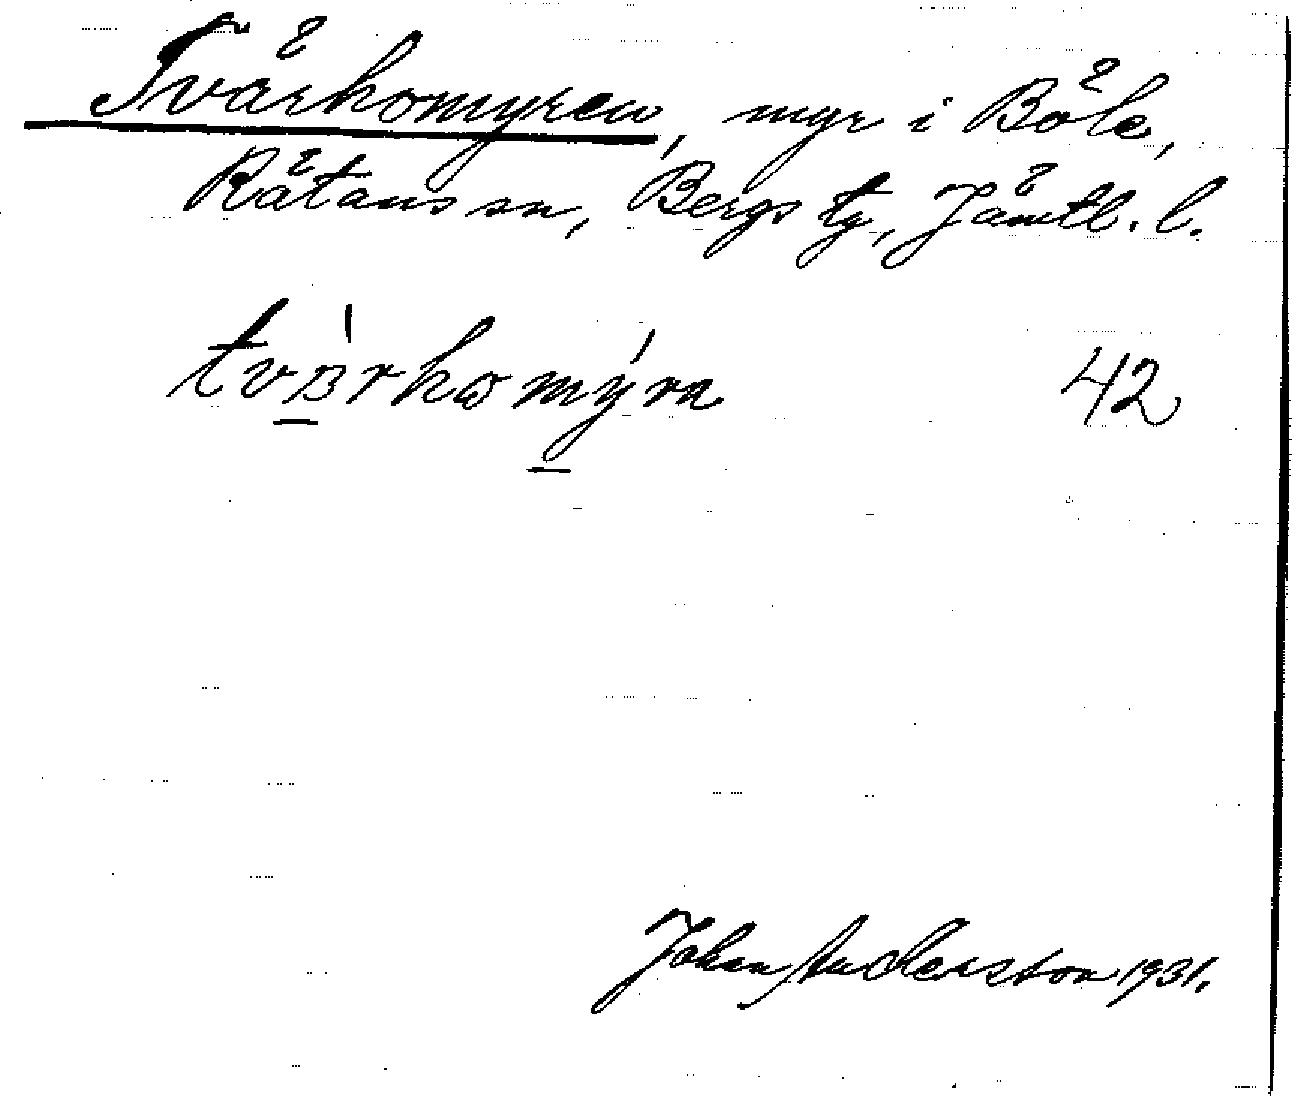 Tvärkomyren, myr i Böle,
Rätans sn, Bergs tg, Jämtl. l.
tvärkomýra 42
Johan Anderston 1931.